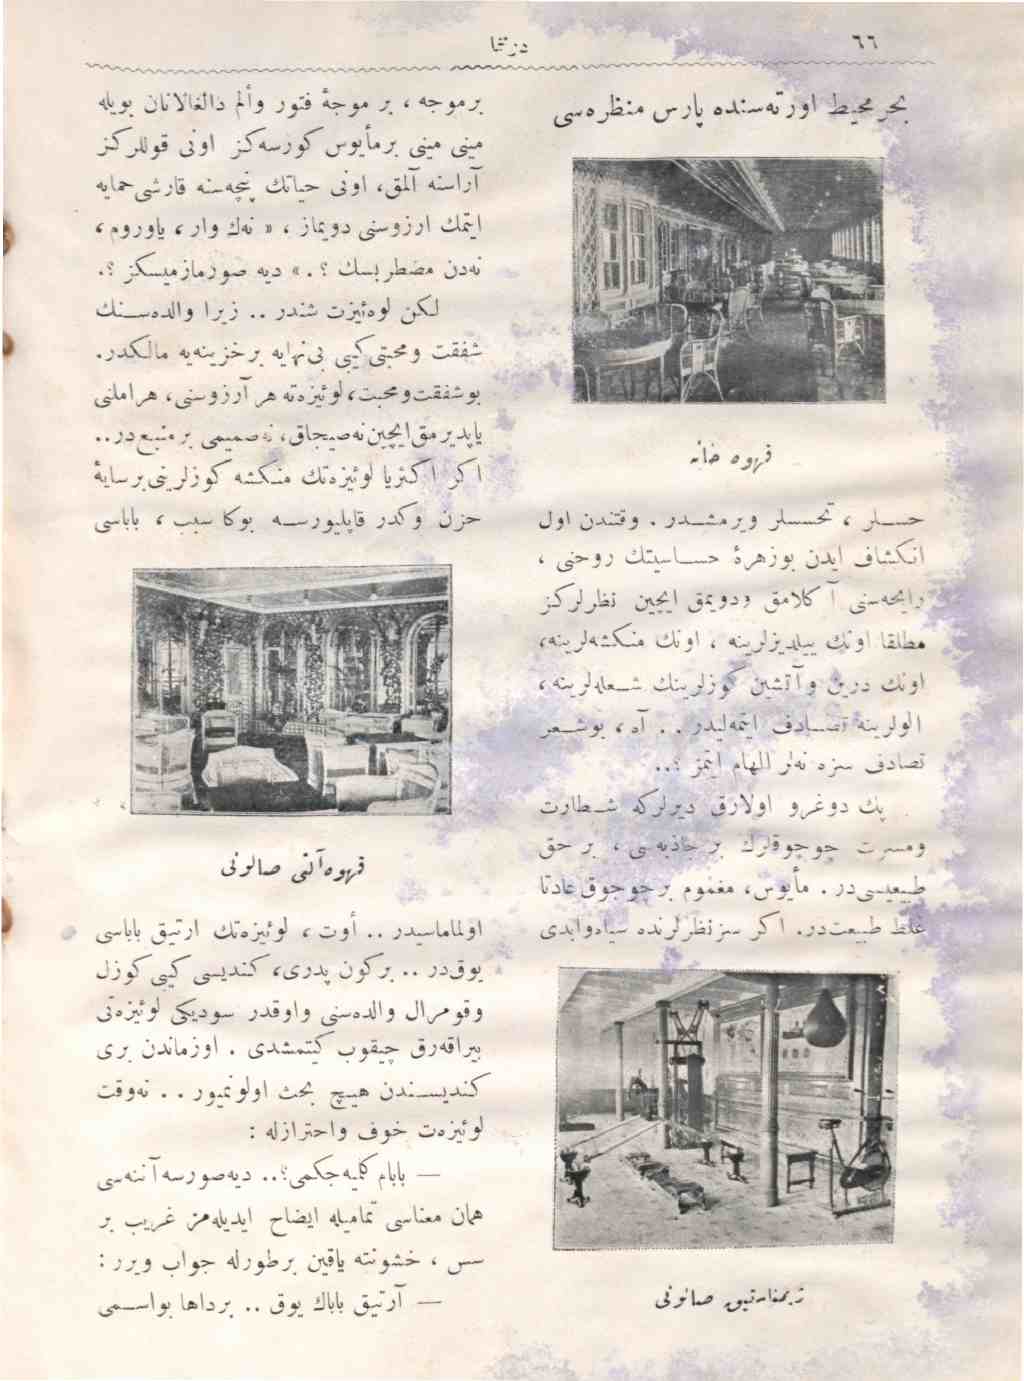 ٦٦
دزتثا
بحر محيط اورته‌سنده پارس منظره‌سى
قهوه خانه
حســلر ، تحسسلر ويرمشــدر . وقتندن اول
انكشاف ايدن بوزهرۀ حســاسيتك روحنى ،
رايحه‌سنى آ كلامق ودويمق ايچين نظرلركز
مطلقا اونك ييلديزلرينه ، اونك منكشه‌لرينه،
اونك درين وآتشين كوزلرينك شــعله‌لرينه،
الولرينه تصــادف ايتمه‌ليدر .. آه ، بوشــعر
تصادف سزه نه‌لر الهام ايتمز ؟..
پك دوغرو اولارق ديرلركه شــطارت
ومسرت چوجوقلرك بر جاذبه‌سى ، بر حق
طبيعيسى‌در . مأيوس، مغموم بر چوجوق عادتا
غلط طبيعت‌در. ا كر سز نظرلرنده سياه‌وابدى
ژيمناستيق صالونى
برموجه ، بر موجۀ فتور وألم دالغالانان بويله
مينى مينى بر مأيوس كورسه‌كز اونى قوللركز
آراسنه آلمق، اونى حياتك پنچه‌سنه قارشى حمايه
ايتمك ارزوسنى دويماز ، « نه‌ك وار ، ياوروم ،
نه‌دن مضطربسك ؟ .» ديه صورمازميسكز ؟.
لكن لوه‌ئيزت شندر .. زيرا والده‌ســنك
شفقت ومحبتى كيبى بى‌نهايه بر خزينه‌يه مالكدر.
بوشفقت ومحبت، لوئيزه‌ته هر آرزوسنى، هر املنى
ياپديرمق ايچين نه صيجاق، نه صميمى بر منبع در..
ا كر ا كثريا لوئيزه‌تك منكشه كوزلرينى بر سايۀ
حزن وكدر قاپليورســه بوكا سبب ، باباسى
قهوه آلتى صالونى
اولماماسيدر .. أوت ، لوئيزه‌تك ارتيق باباسى
يوق‌در .. بركون پدرى، كنديسى كيبى كوزل
وقومرال والده‌سنى واوقدر سوديكى لوئيزه‌تى
بيراقه‌رق چيقوب كيتمشدى . اوزماندن برى
كنديســندن هيــچ بحث اولونميور .. نه‌وقت
لوئيزه‌ت خوف واحترازله :
— بابام كليه‌جكمى؟.. ديه‌صورسه آننه‌سى
همان معناسى تماميله ايضاح ايديله‌مز غريب بر
سس ، خشونته ياقين بر طورله جواب ويرر :
— آرتيق باباك يوق .. برداها بواســمى